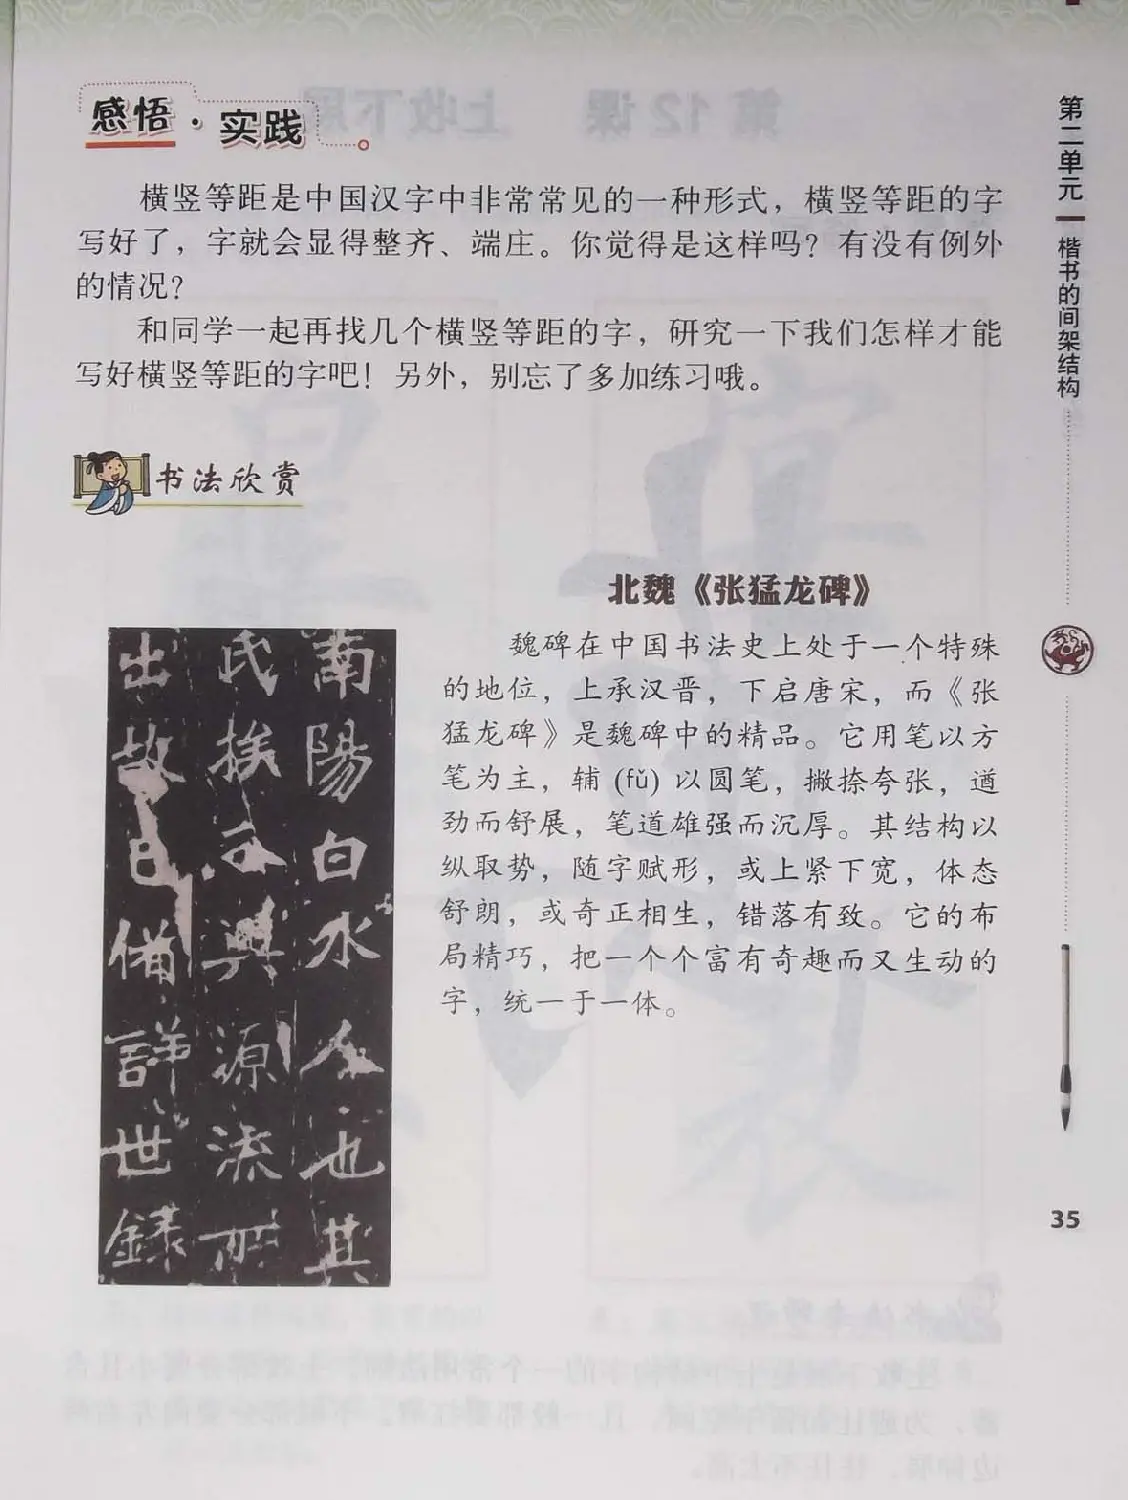 感悟·实践
横竖等距是中国汉字中非常常见的一种形式，横竖等距的字
写好了，字就会显得整齐、端庄。你觉得是这样吗？有没有例外
的情况？
和同学一起再找几个横竖等距的字，研究一下我们怎样才能
写好横竖等距的字吧！另外，别忘了多加练习哦。
书法欣赏
北魏《张猛龙碑》
魏碑在中国书法史上处于一个特殊
的地位，上承汉晋，下启唐宋，而《张
猛龙碑》是魏碑中的精品。它用笔以方
笔为主，辅 (fǔ) 以圆笔，撇捺夸张，遒
劲而舒展，笔道雄强而沉厚。其结构以
纵取势，随字赋形，或上紧下宽，体态
舒朗，或奇正相生，错落有致。它的布
局精巧，把一个个富有奇趣而又生动的
字，统一于一体。
南陽白水人也其
氏族之興源流所
出故已備詳世錄
第二单元
楷书的间架结构
35
第12课 上收下展